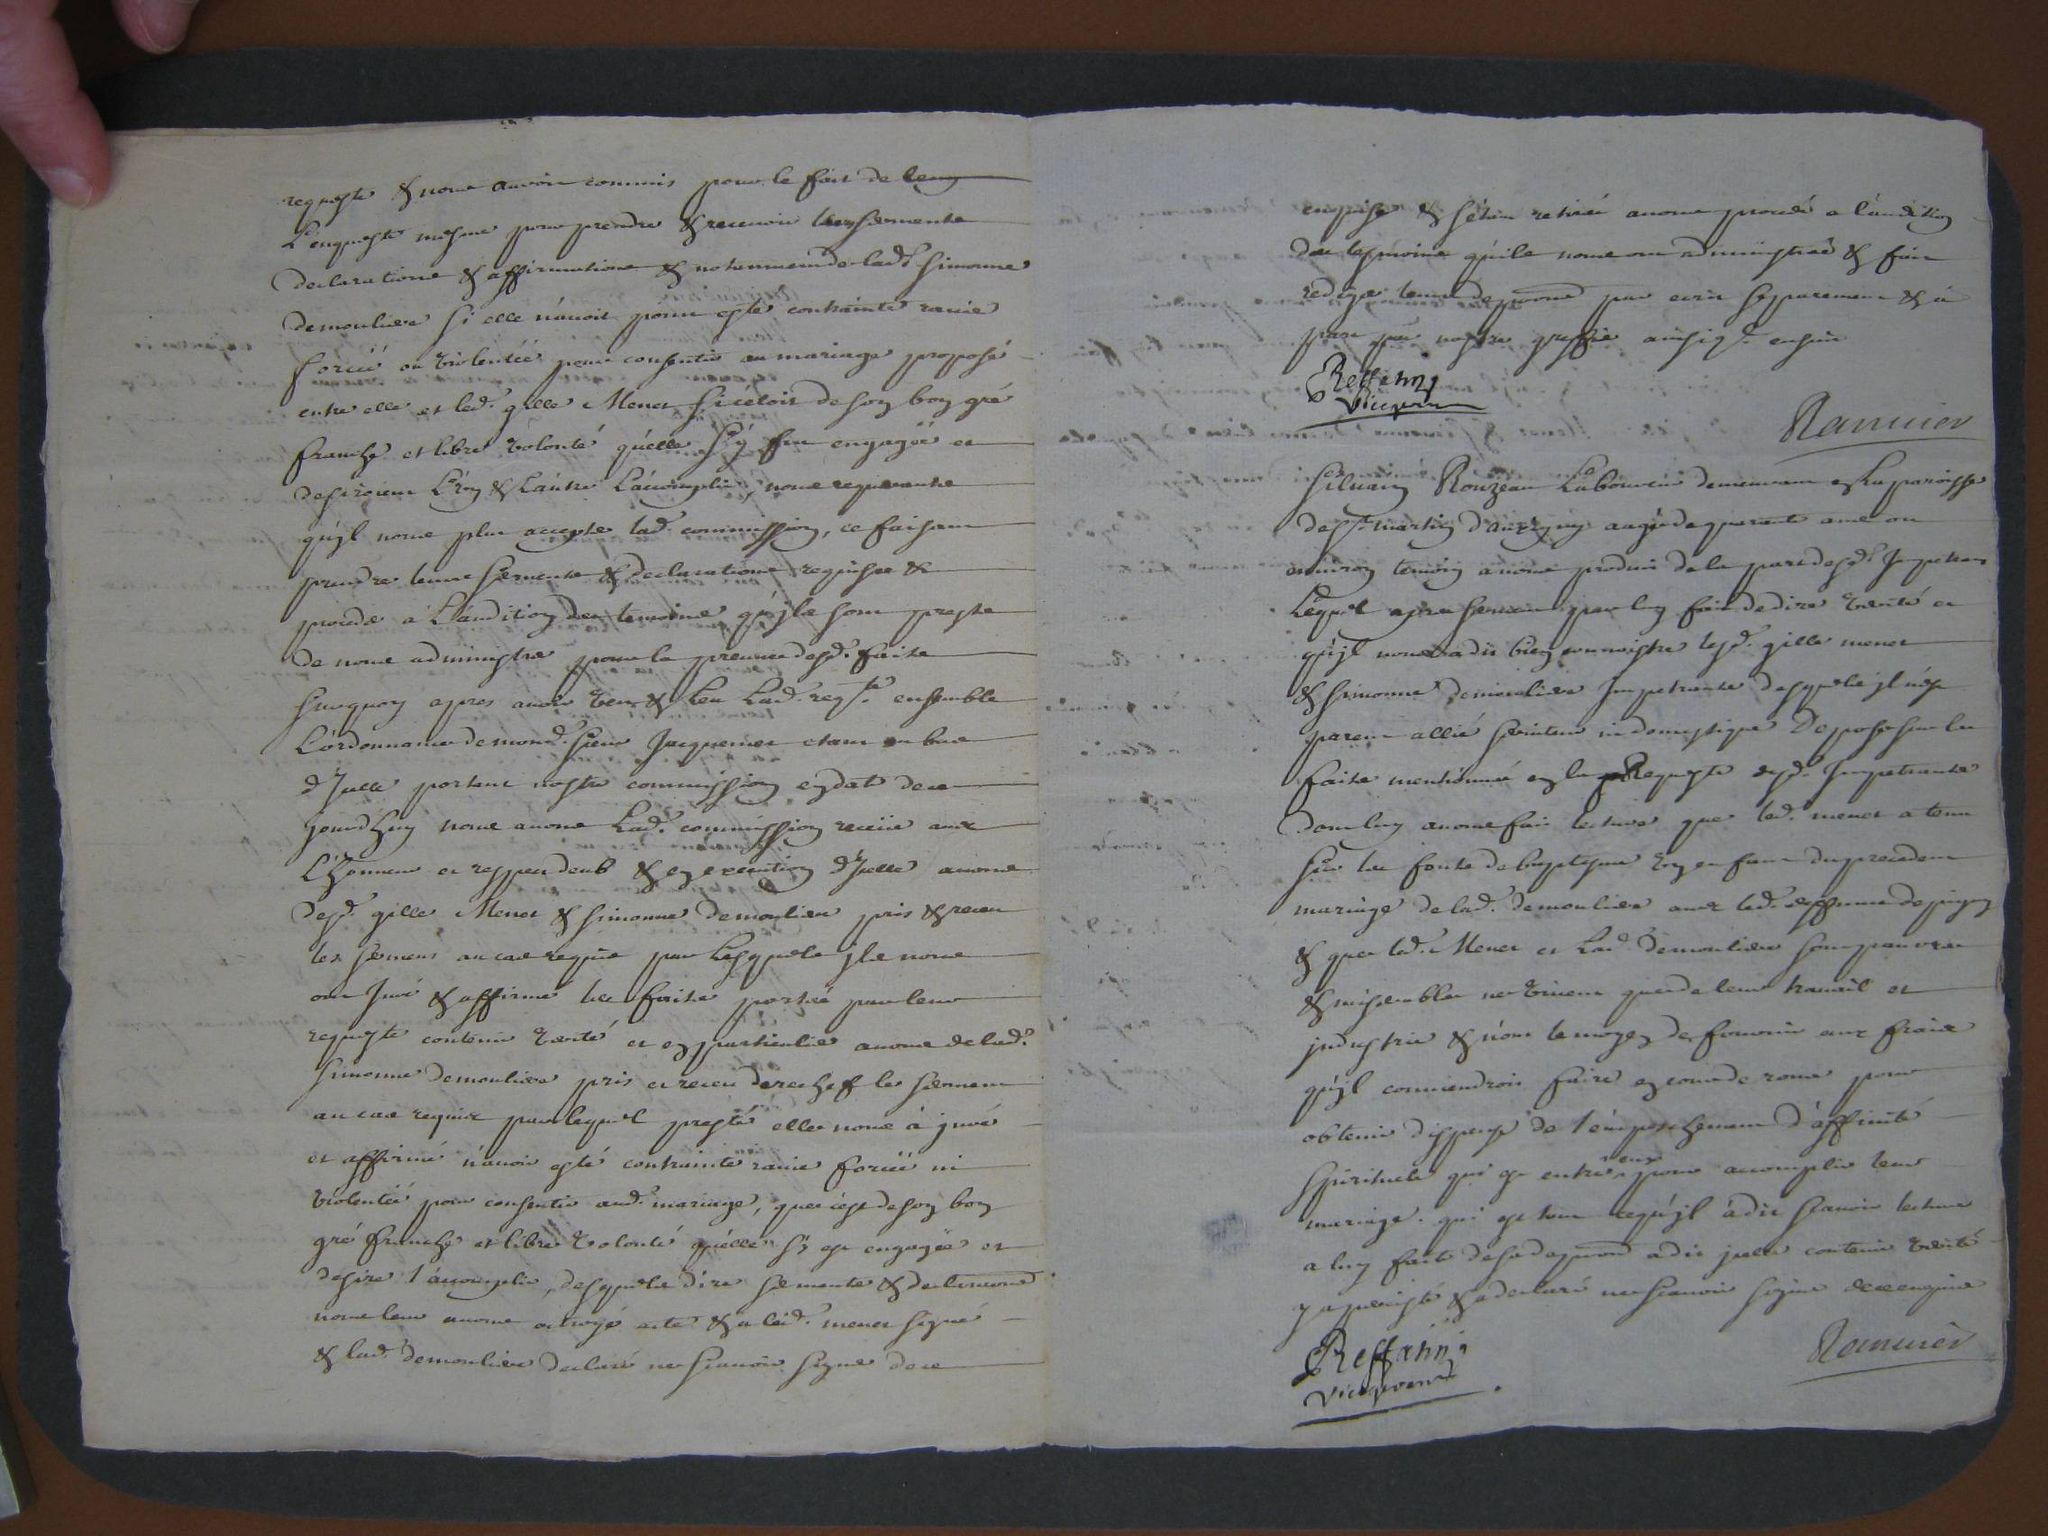 requeste & nous auroir commis pour le fait de leur
L'enqueste mesme pour prendre & recevoir leurs serments
declarations & affirmations & notamment de lad.te simonne
demouliere si elle n'avoit point esté contrainte ravie
forcéé ou violentéé pour consentir au mariage proposé
entre elle et led. gille Menet si cetoit de son bon gré
franche et libre volonté qu'elle s'y fut engagéé et
desiroient L'un & L'autre L'accomplir, nous requerants
qu'jl nous plut accepter lad. commission, ce faisant
prendre leurs serments & declarations requises &
proceder a L'audition des temoins qu'jls sont prests
de nous administrer pour la preuve desd. faits
surquoy apres avoir veu & leu Lad. reqte. ensemble
L'ordonnance de mond. sieur Jacquemet etant au bas
d'Jcelle portant nostre commission en date de ce
jourd'huy nous avons Lad. commission receüe avec
L'honneur et respect deub & en execution d'Jcelle avons
desd. gille Menet & simonne demouliere pris & receu
les serments au cas requis par lesquels jls nous
ont Juré & affirmé les faits portés par leur
requeste contenir verité et en particulier avons de lad.
simonne demouliere pris et receu derechef le serment
au cas requis par lequel presté elle nous à juré
et affirmé n'avoir esté contrainte ravie forcéé ni
violentéé pour consentir aud. mariage, que c'est de son bon
gré franche et libre volonté qu'elle s'y est engagéé et
desire l'accomplir, desquels dire serments & declarations
nous leur avons octroyé acte & a led. menet signé
& lad. demouliere declaré ne scavoir signer de ce
enquise & s'étant retirés avons procedé a l'audition
des tesmoins qu'ils nous ont administrés & fait
rediger leurs depositions par ecrit separement & à
part par nostre greffier ainsi q. ensuit
Reffatin
vicegerent
Ramusier
silvain Rouzeau Laboureur demeurant en La paroisse
de st. martin d'auxigny aagé de quarante ans ou
environ temoin a nous produit de la part desd. Impetrans
Lequel apres serment par luy fait de dire verité et
qu'jl nous a dit bien connoistre lesd. gille menet
& simonne demouliere Impetrants desquels jl n'est
parent allié serviteur ni domestique Depose sur les
faits mentionnés en la Requeste desd. Impetrants
dont luy avons fait lecture que led. menet a tenu
sur les fonts de baptesme un enfant du precedent
mariage de lad. demouliere avec led. deffunt
& que led. Menet et Lad. demouliere sont pauvres
& miserables ne vivent que de leur travail et
jndustrie & n'ont le moyen de fournir aux frais
qu'jl conviendroit faire en cour de rome pour
obtenir dispense de l'empeschement d'affinité
spirituele qui est entre eux pour accomplir leur
mariage. qui est tout ce qu'jl à dit scavoir lecture
a luy faite de sa deposition a dit jcelle contenir verité
y a persisté & a declaré ne scavoir signer de ce enquis
Reffatin
vicegerent
Ramusier